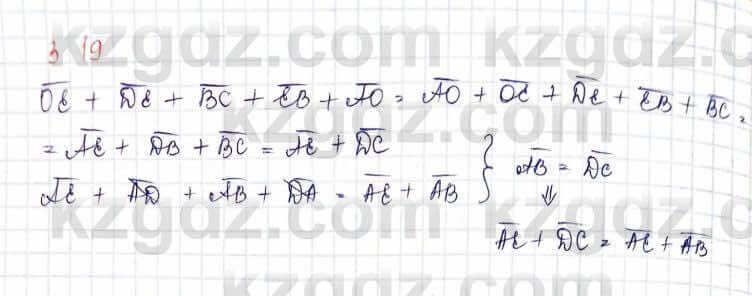 3.19
kzgdz.com kzgdz.com
O̅E̅ + D̅E̅ + B̅C̅ + E̅B̅ + A̅O̅ = A̅O̅ + O̅E̅ + D̅E̅ + E̅B̅ + B̅C̅ =
= A̅E̅ + D̅B̅ + B̅C̅ = A̅E̅ + D̅C̅
A̅E̅ + A̅D̅ + A̅B̅ + D̅A̅ = A̅E̅ + A̅B̅ } A̅B̅ = D̅C̅
⇓
A̅E̅ + D̅C̅ = A̅E̅ + A̅B̅